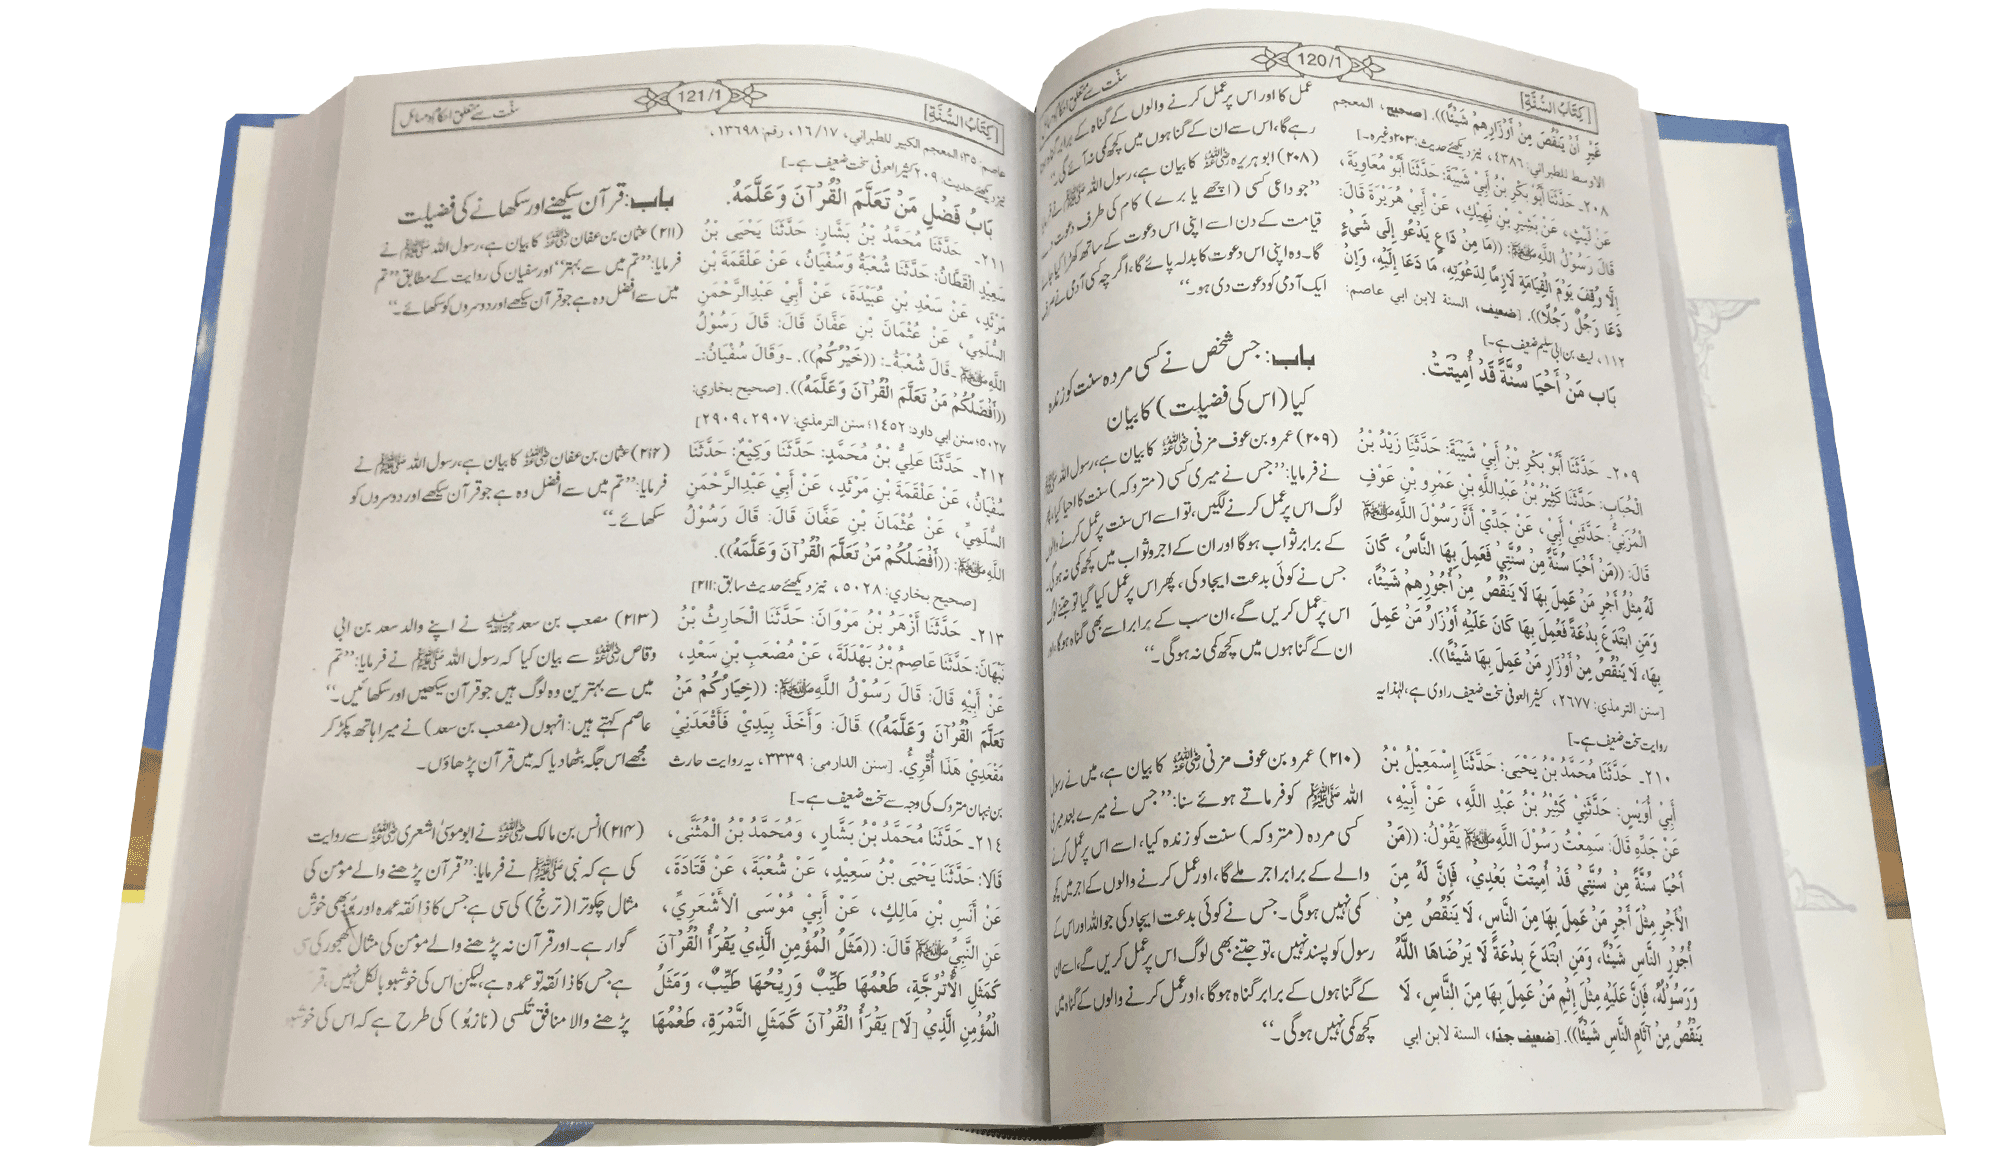 [كِتَابُ السُّنَّةِ]
120/1
سنت سے متعلق احکام ومسائل
غَيْرِ أَنْ يَنْقُصَ مِنْ أَوْزَارِهِمْ شَيْئًا)). [صحيح، المعجم
الاوسط للطبراني: ٤٣٨٦، نیز دیکھئے حدیث: ۲۰۳ وغیرہ۔]
٢٠٨۔ حَدَّثَنَا أَبُو بَكْرِ بْنُ أَبِي شَيْبَةَ: حَدَّثَنَا أَبُو مُعَاوِيَةَ،
عَنْ لَيْثٍ، عَنْ بَشِيرِ بْنِ نَهِيكٍ، عَنْ أَبِي هُرَيْرَةَ قَالَ:
قَالَ رَسُوْلُ اللَّهِ ﷺ: ((مَا مِنْ دَاعٍ يَدْعُو إِلَى شَيْءٍ
إِلَّا وُقِفَ يَوْمَ الْقِيَامَةِ لَازِمًا لِدَعْوَتِهِ، مَا دَعَا إِلَيْهِ، وَإِنْ
دَعَا رَجُلٌ رَجُلًا)). [ضعيف، السنة لابن ابي عاصم:
١١٢، لیث بن ابی سلیم ضعیف ہے۔]
بَاب مَنْ أَحْيَا سُنَّةً قَدْ أُمِيْتَتْ.
٢٠٩۔ حَدَّثَنَا أَبُو بَكْرِ بْنُ أَبِي شَيْبَةَ: حَدَّثَنَا زَيْدُ بْنُ
الْحُبَابِ: حَدَّثَنَا كَثِيْرُ بْنُ عَبْدِاللَّهِ بْنِ عَمْرِو بْنِ عَوْفٍ
الْمُزَنِيُّ: حَدَّثَنِيْ أَبِيْ، عَنْ جَدِّيْ أَنَّ رَسُوْلَ اللَّهِ ﷺ
قَالَ: ((مَنْ أَحْيَا سُنَّةً مِنْ سُنَّتِيْ فَعَمِلَ بِهَا النَّاسُ، كَانَ
لَهُ مِثْلُ أَجْرِ مَنْ عَمِلَ بِهَا لَا يَنْقُصُ مِنْ أُجُوْرِهِمْ شَيْئًا،
وَمَنِ ابْتَدَعَ بِدْعَةً فَعُمِلَ بِهَا كَانَ عَلَيْهِ أَوْزَارُ مَنْ عَمِلَ
بِهَا، لَا يَنْقُصُ مِنْ أَوْزَارِ مَنْ عَمِلَ بِهَا شَيْئًا)).
[سنن الترمذي: ٢٦٧٧، کثیر العوفی سخت ضعیف راوی ہے، لہٰذا یہ
روایت سخت ضعیف ہے۔]
٢١٠۔ حَدَّثَنَا مُحَمَّدُ بْنُ يَحْيَى: حَدَّثَنَا إِسْمَعِيْلُ بْنُ
أَبِيْ أُوَيْسٍ: حَدَّثَنِيْ كَثِيْرُ بْنُ عَبْدِ اللَّهِ، عَنْ أَبِيْهِ،
عَنْ جَدِّهِ قَالَ: سَمِعْتُ رَسُوْلَ اللَّهِ ﷺ يَقُوْلُ: ((مَنْ
أَحْيَا سُنَّةً مِنْ سُنَّتِيْ قَدْ أُمِيْتَتْ بَعْدِيْ، فَإِنَّ لَهُ مِنَ
الْأَجْرِ مِثْلَ أَجْرِ مَنْ عَمِلَ بِهَا مِنَ النَّاسِ، لَا يَنْقُصُ مِنْ
أُجُوْرِ النَّاسِ شَيْئًا، وَمَنِ ابْتَدَعَ بِدْعَةً لَا يَرْضَاهَا اللَّهُ
وَرَسُوْلُهُ، فَإِنَّ عَلَيْهِ مِثْلَ إِثْمِ مَنْ عَمِلَ بِهَا مِنَ النَّاسِ، لَا
يَنْقُصُ مِنْ آثَامِ النَّاسِ شَيْئًا)). [ضعيف جدا، السنة لابن ابي
عمل کا اور اس پر عمل کرنے والوں کے گناہ کے برابر
رہے گا، اس سے ان کے گناہوں میں کچھ کمی نہ آئے گی۔“
(۲۰۸) ابو ہریرہ رضی اللہ عنہ کا بیان ہے، رسول اللہ ﷺ نے
”جو داعی کسی (اچھے یا برے) کام کی طرف دعوت
قیامت کے دن اسے اپنی اس دعوت کے ساتھ کھڑا کیا جائے
گا۔ وہ اپنی اس دعوت کا بدلہ پائے گا، اگرچہ کسی آدمی نے صرف
ایک آدمی کو دعوت دی ہو۔“
باب: جس شخص نے کسی مردہ سنت کو زندہ
کیا (اس کی فضیلت) کا بیان
(۲۰۹) عمرو بن عوف مزنی رضی اللہ عنہ کا بیان ہے، رسول اللہ ﷺ
نے فرمایا: ”جس نے میری کسی (متروکہ) سنت کا احیا کیا،
لوگ اس پر عمل کرنے لگیں، تو اسے اس سنت پر عمل کرنے والوں
کے برابر ثواب ہوگا اور ان کے اجر و ثواب میں کچھ کمی نہ ہوگی
جس نے کوئی بدعت ایجاد کی، پھر اس پر عمل کیا گیا تو جتنے لوگ
اس پر عمل کریں گے، ان سب کے برابر اسے بھی گناہ ہوگا اور
ان کے گناہوں میں کچھ کمی نہ ہوگی۔“
(۲۱۰) عمرو بن عوف مزنی رضی اللہ عنہ کا بیان ہے، میں نے رسول
اللہ ﷺ کو فرماتے ہوئے سنا: ”جس نے میرے بعد میری
کسی مردہ (متروکہ) سنت کو زندہ کیا، اسے اس پر عمل کرنے
والے کے برابر اجر ملے گا، اور عمل کرنے والوں کے اجر میں کچھ
کمی نہیں ہوگی۔ جس نے کوئی بدعت ایجاد کی جو اللہ اور اس کے
رسول کو پسند نہیں، تو جتنے بھی لوگ اس پر عمل کریں گے، اسے ان
کے گناہوں کے برابر گناہ ہوگا، اور عمل کرنے والوں کے گناہ میں
کچھ کمی نہیں ہوگی۔“
[كِتَابُ السُّنَّةِ]
121/1
سنت سے متعلق احکام ومسائل
عاصم: ٣٥؛ المعجم الكبير للطبراني، ١٦/١٧، رقم: ١٣٦٩٨،
نیز دیکھئے حدیث: ٢٠٩ کثیر العوفی سخت ضعیف ہے۔]
بَابُ فَضْلِ مَنْ تَعَلَّمَ الْقُرْآنَ وَعَلَّمَهُ.
٢١١۔ حَدَّثَنَا مُحَمَّدُ بْنُ بَشَّارٍ: حَدَّثَنَا يَحْيَى بْنُ
سَعِيْدِ الْقَطَّانُ: حَدَّثَنَا شُعْبَةُ وَسُفْيَانُ، عَنْ عَلْقَمَةَ بْنِ
مَرْثَدٍ، عَنْ سَعْدِ بْنِ عُبَيْدَةَ، عَنْ أَبِيْ عَبْدِالرَّحْمَنِ
السُّلَمِيِّ، عَنْ عُثْمَانَ بْنِ عَفَّانَ قَالَ: قَالَ رَسُوْلُ
اللَّهِ ﷺ۔قَالَ شُعْبَةُ۔: ((خَيْرُكُمْ)). ۔وَقَالَ سُفْيَانُ:۔
((أَفْضَلُكُمْ مَنْ تَعَلَّمَ الْقُرْآنَ وَعَلَّمَهُ)). [صحيح بخاري:
٥٠٢٧؛ سنن ابي داود: ١٤٥٢؛ سنن الترمذي: ٢٩٠٧، ٢٩٠٩]
٢١٢۔ حَدَّثَنَا عَلِيُّ بْنُ مُحَمَّدٍ: حَدَّثَنَا وَكِيْعٌ: حَدَّثَنَا
سُفْيَانُ، عَنْ عَلْقَمَةَ بْنِ مَرْثَدٍ، عَنْ أَبِيْ عَبْدِالرَّحْمَنِ
السُّلَمِيِّ، عَنْ عُثْمَانَ بْنِ عَفَّانَ قَالَ: قَالَ رَسُوْلُ
اللَّهِ ﷺ: ((أَفْضَلُكُمْ مَنْ تَعَلَّمَ الْقُرْآنَ وَعَلَّمَهُ)).
[صحيح بخاري: ٥٠٢٨، نیز دیکھئے حدیث سابق: ۲۱۱]
٢١٣۔ حَدَّثَنَا أَزْهَرُ بْنُ مَرْوَانَ: حَدَّثَنَا الْحَارِثُ بْنُ
نَبْهَانَ: حَدَّثَنَا عَاصِمُ بْنُ بَهْدَلَةَ، عَنْ مُصْعَبِ بْنِ سَعْدٍ،
عَنْ أَبِيْهِ قَالَ: قَالَ رَسُوْلُ اللَّهِ ﷺ: ((خِيَارُكُمْ مَنْ
تَعَلَّمَ الْقُرْآنَ وَعَلَّمَهُ)) قَالَ: وَأَخَذَ بِيَدِيْ فَأَقْعَدَنِيْ
مَقْعَدِيْ هَذَا أُقْرِئُ. [سنن الدارمي: ٣٣٣٩، یہ روایت حارث
بن نبہان متروک کی وجہ سے سخت ضعیف ہے۔]
٢١٤۔ حَدَّثَنَا مُحَمَّدُ بْنُ بَشَّارٍ، وَمُحَمَّدُ بْنُ الْمُثَنَّى،
قَالَا: حَدَّثَنَا يَحْيَى بْنُ سَعِيْدٍ، عَنْ شُعْبَةَ، عَنْ قَتَادَةَ،
عَنْ أَنَسِ بْنِ مَالِكٍ، عَنْ أَبِيْ مُوْسَى الْأَشْعَرِيِّ،
عَنِ النَّبِيِّ ﷺ قَالَ: ((مَثَلُ الْمُؤْمِنِ الَّذِيْ يَقْرَأُ الْقُرْآنَ
كَمَثَلِ الْأُتْرُجَّةِ، طَعْمُهَا طَيِّبٌ وَرِيْحُهَا طَيِّبٌ، وَمَثَلُ
الْمُؤْمِنِ الَّذِيْ [لَا] يَقْرَأُ الْقُرْآنَ كَمَثَلِ التَّمْرَةِ، طَعْمُهَا
باب: قرآن سیکھنے اور سکھانے کی فضیلت
(۲۱۱) عثمان بن عفان رضی اللہ عنہ کا بیان ہے، رسول اللہ ﷺ نے
فرمایا: ”تم میں سے بہتر“ اور سفیان کی روایت کے مطابق ”تم
میں سے افضل وہ ہے جو قرآن سیکھے اور دوسروں کو سکھائے۔“
(۲۱۲) عثمان بن عفان رضی اللہ عنہ کا بیان ہے، رسول اللہ ﷺ نے
فرمایا: ”تم میں سے افضل وہ ہے جو قرآن سیکھے اور دوسروں کو
سکھائے۔“
(۲۱۳) مصعب بن سعد رحمہ اللہ نے اپنے والد سعد بن ابی
وقاص رضی اللہ عنہ سے بیان کیا کہ رسول اللہ ﷺ نے فرمایا: ”تم
میں سے بہترین وہ لوگ ہیں جو قرآن سیکھیں اور سکھائیں۔“
عاصم کہتے ہیں: انہوں (مصعب بن سعد) نے میرا ہاتھ پکڑ کر
مجھے اس جگہ بٹھا دیا کہ میں قرآن پڑھاؤں۔
(۲۱۴) انس بن مالک رضی اللہ عنہ نے ابوموسیٰ اشعری رضی اللہ عنہ سے روایت
کی ہے کہ نبی ﷺ نے فرمایا: ”قرآن پڑھنے والے مومن کی
مثال چکوترا (ترنج) کی سی ہے جس کا ذائقہ عمدہ اور بو بھی خوش
گوار ہے۔ اور قرآن نہ پڑھنے والے مومن کی مثال کھجور کی سی
ہے جس کا ذائقہ تو عمدہ ہے، لیکن اس کی خوشبو بالکل نہیں،
پڑھنے والا منافق تلسی (نازبُو) کی طرح ہے کہ اس کی خوشبو